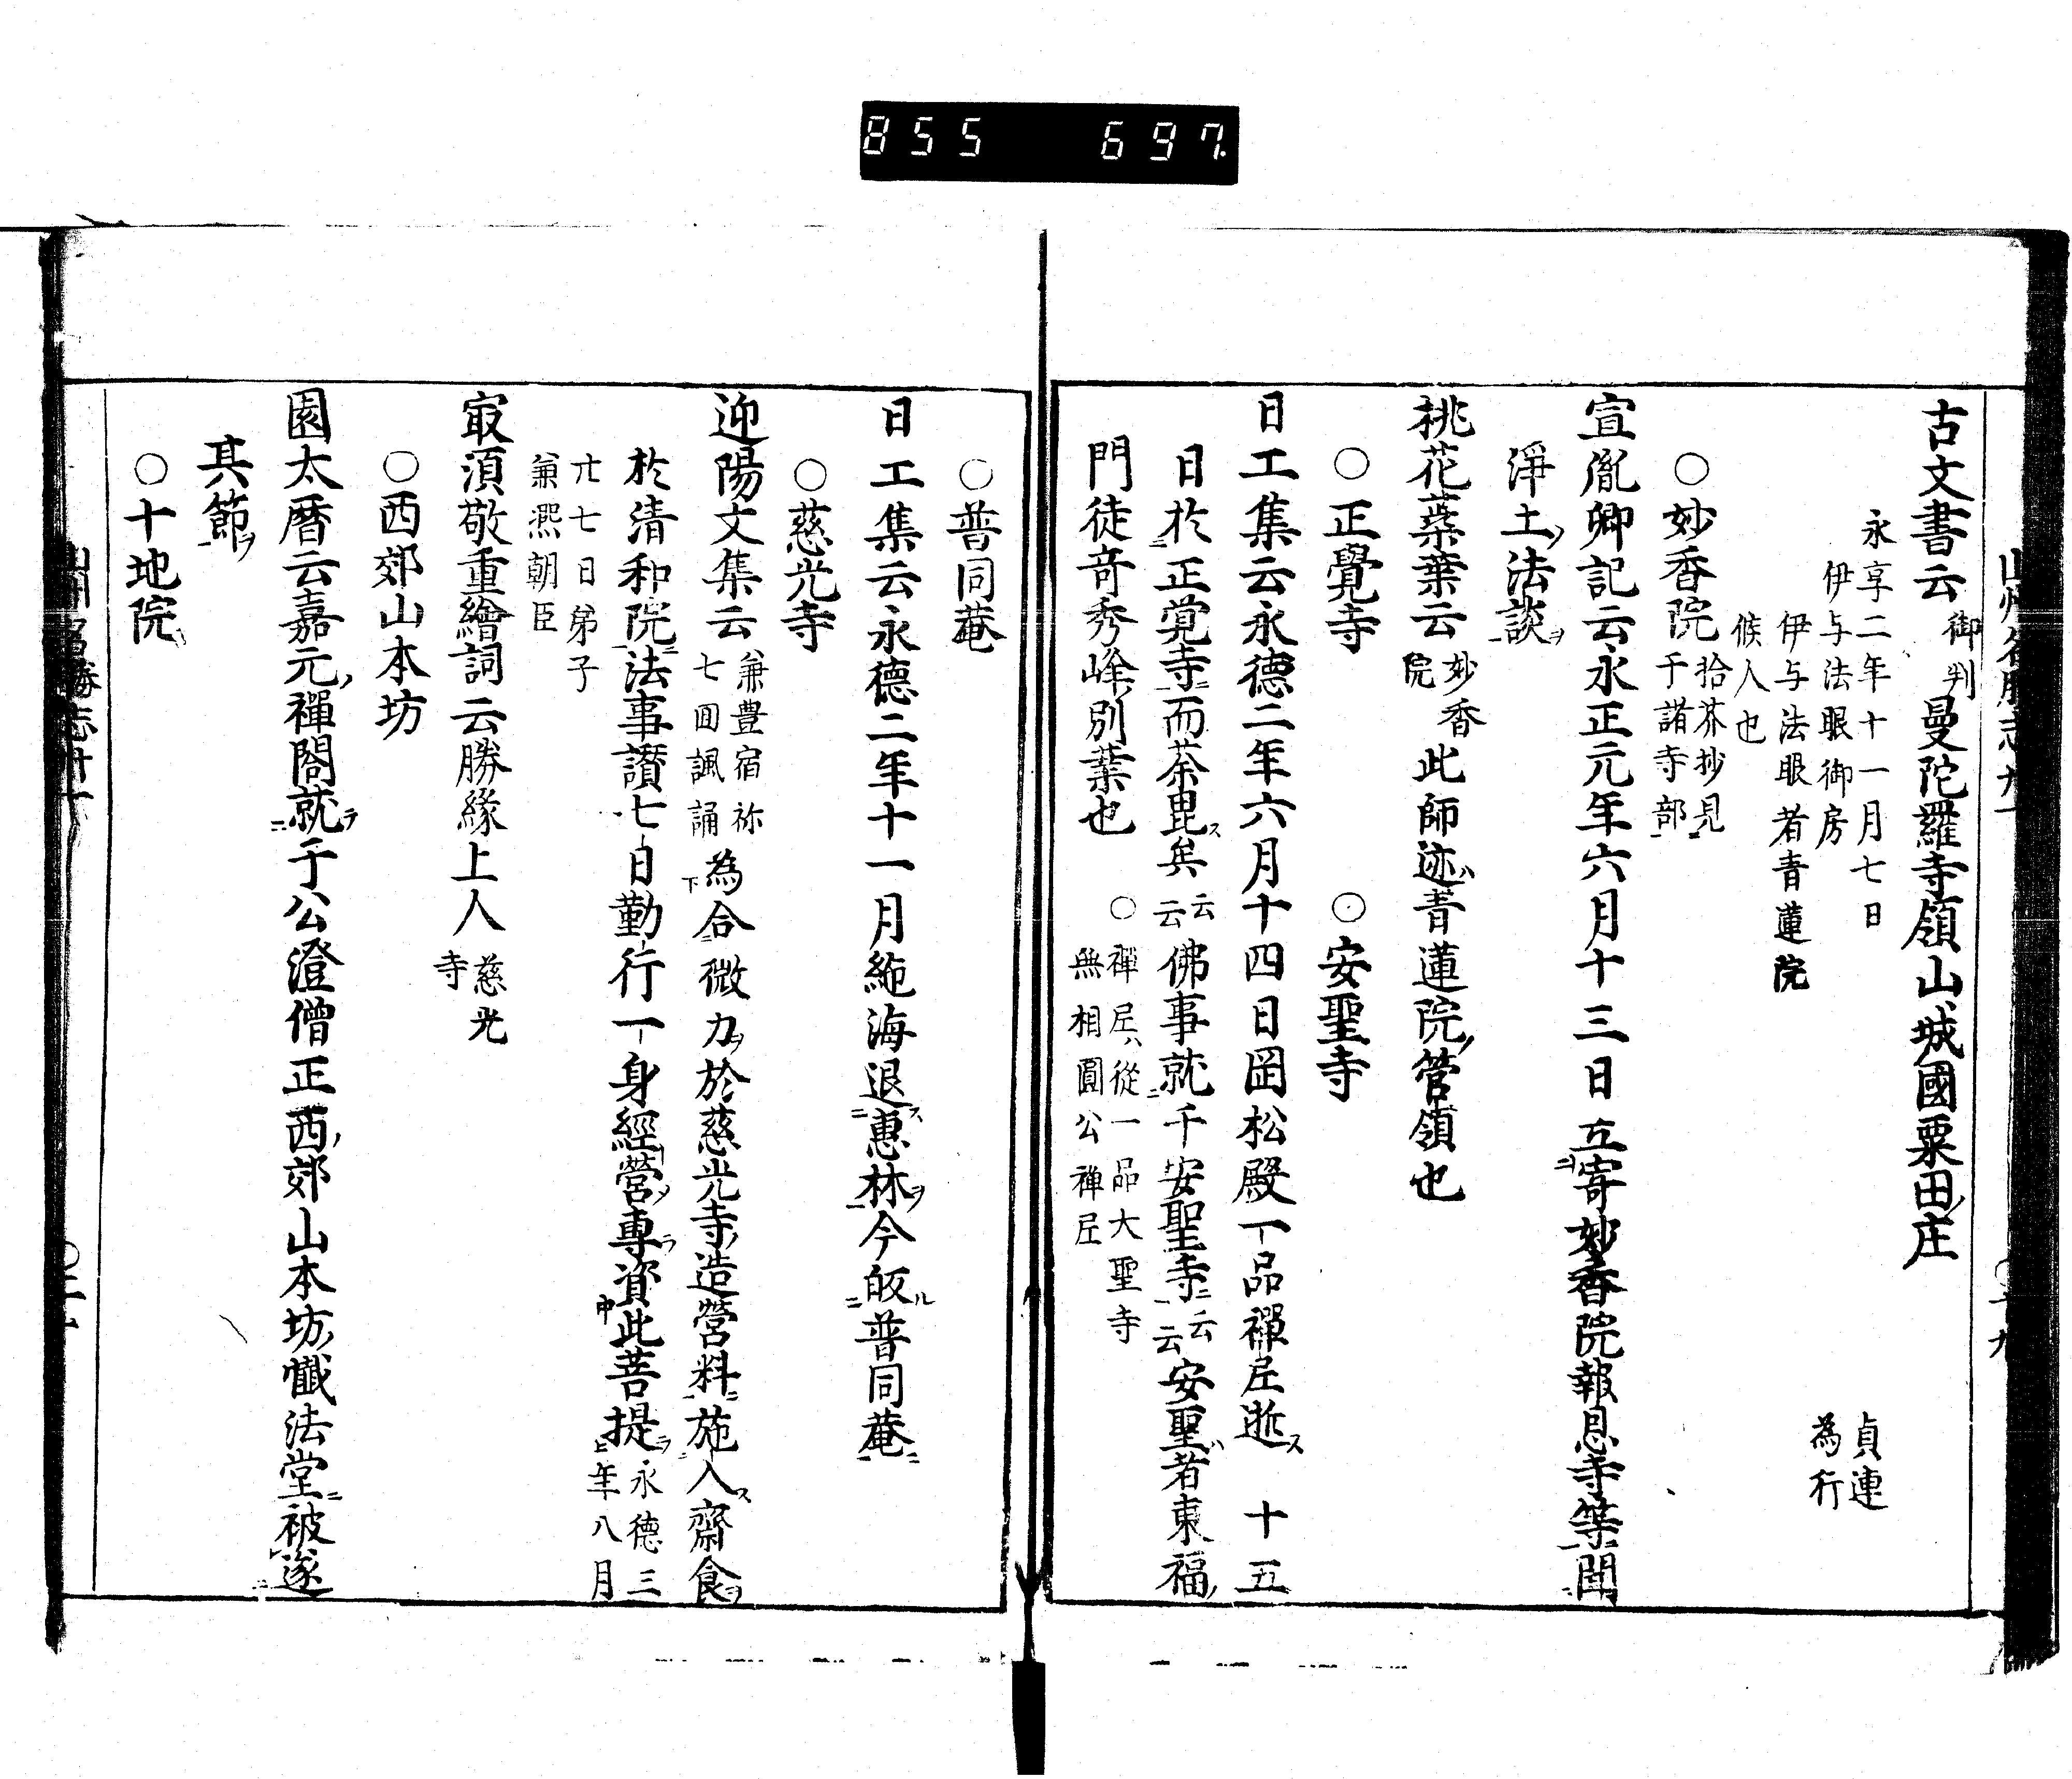 855 697
古文書云 御判 曼陀羅寺領山城國粟田ノ庄
永享二年十一月七日 貞連
伊与法眼御房 為行
伊与法眼者青蓮院
候人也
○妙香院 拾芥抄見
于諸寺部
宣胤卿記云永正元年六月十三日立寄妙香院報恩寺等聞
淨土ノ法談ヲ
桃花蘂葉云 妙香
院 此師迹ハ青蓮院ノ管領也
○正覺寺 ○安聖寺
日工集云永德二年六月十四日岡松殿一品禪尼逝ス 十五
日於正覚寺ニ而茶毘ス矣 云
云 佛事就千安聖寺ニ 云
云 安聖ハ者東福ノ
門徒竒秀峰ノ別業也 ○禪尼ハ從一品大聖寺
無相圓公禅尼
○普同菴
日工集云永德二年十一月絶海退ス惠林ヲ今皈ル普同菴ニ
○慈光寺
迎陽文集云 兼豊宿祢
七回諷誦 為合微力ヲ於慈光寺ノ造營料ニ施入ス齋食ヲ
下
於清和院ニ法事讃七日勤行一身經營ノ專ラ資此菩提ヲ 永德三
中 年八月
廿七日弟子
兼凞朝臣
㝡須敬重繪詞云勝緣上人 慈光
寺
○西郊山本坊
園太暦云嘉元ノ禪閤就テ于公澄僧正西ノ郊山本坊ノ懺法堂ニ被遂
其節ヲ
○十地院
山州名勝志廿一